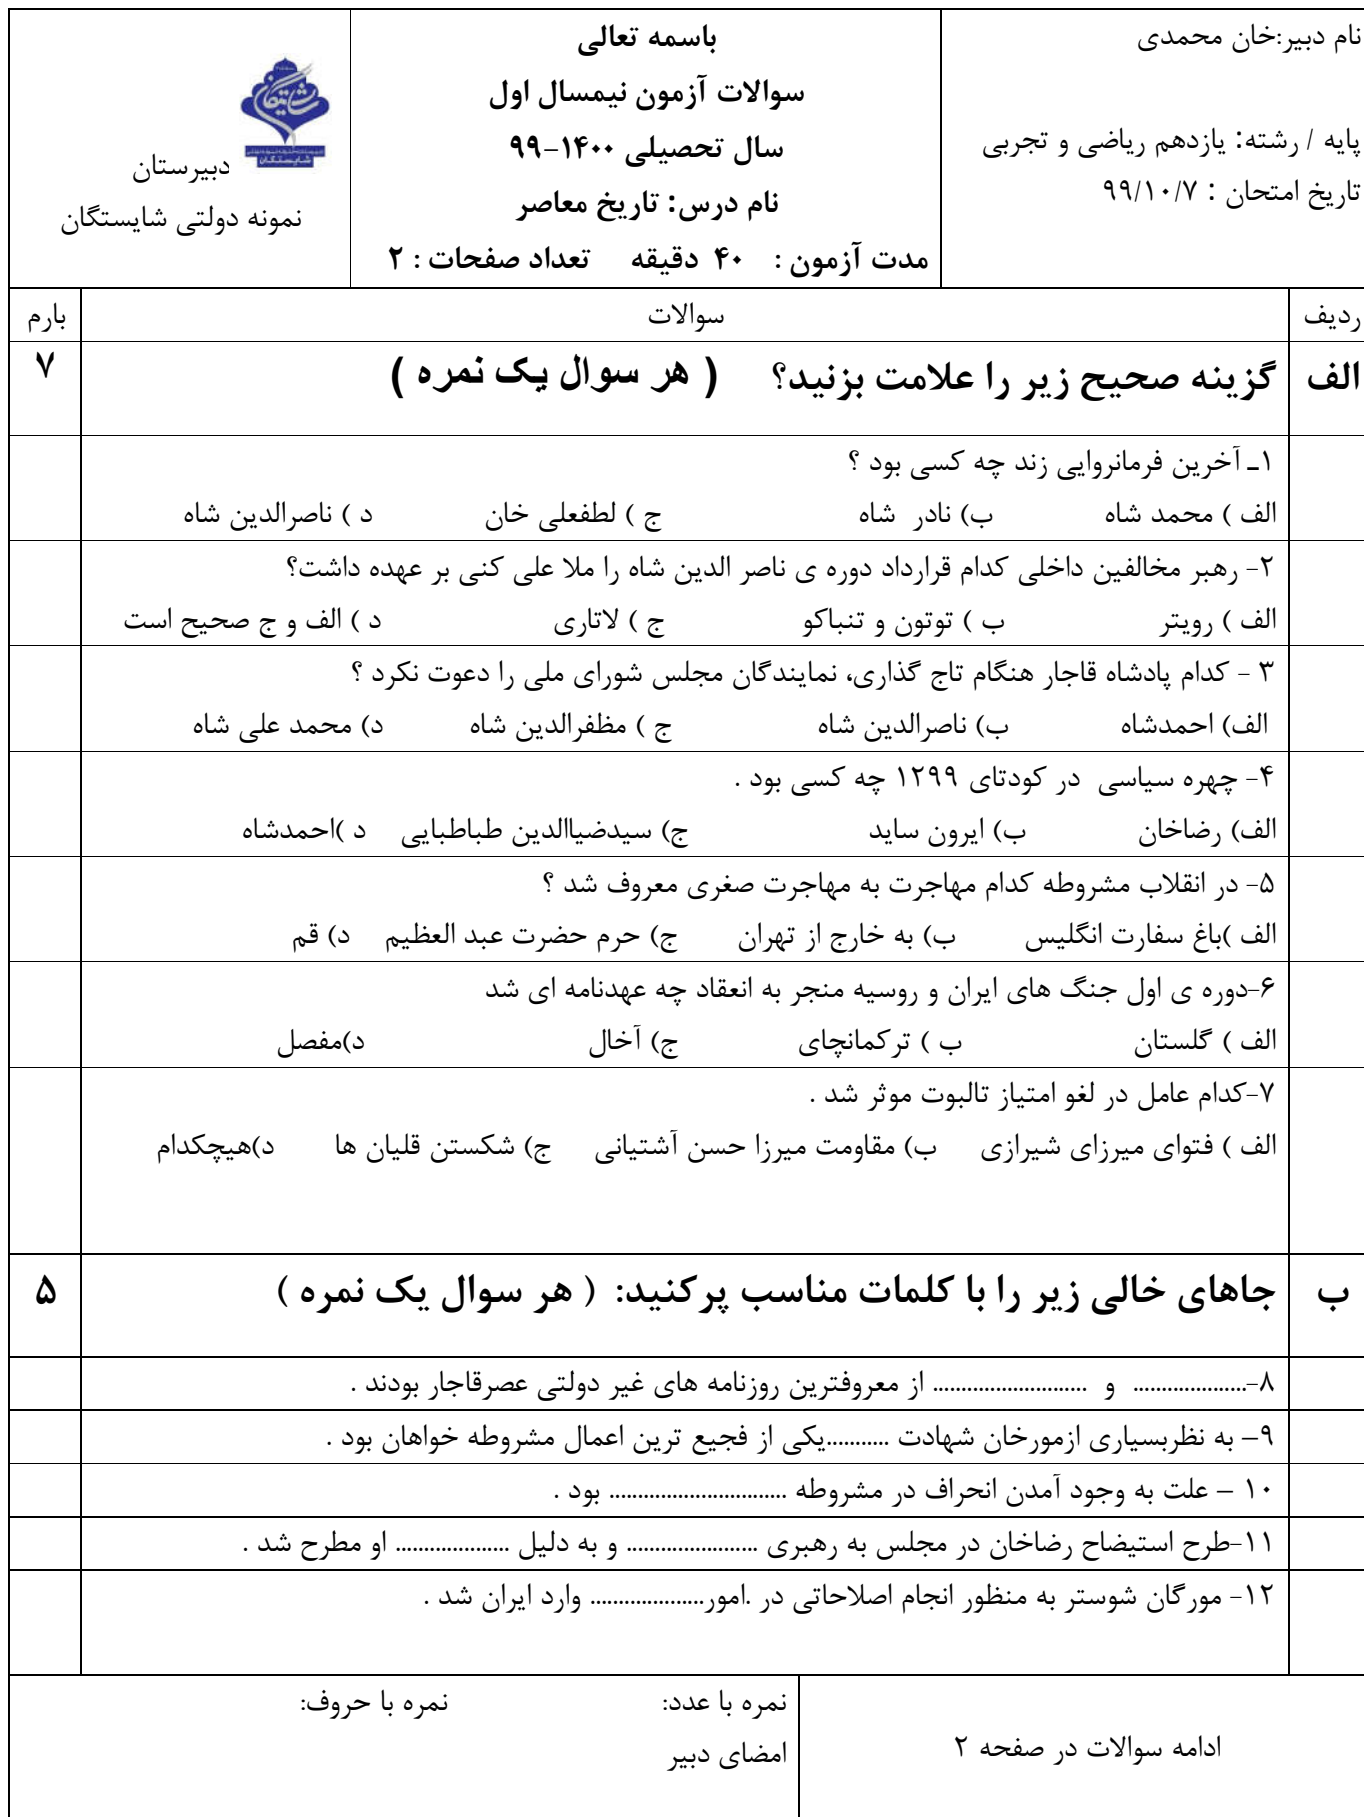 نام دبیر:خان محمدی
پایه / رشته: یازدهم ریاضی و تجربی
تاریخ امتحان : ۹۹/۱۰/۷
باسمه تعالی
سوالات آزمون نیمسال اول
سال تحصیلی ۱۴۰۰-۹۹
نام درس: تاریخ معاصر
مدت آزمون : ۴۰ دقیقه تعداد صفحات : ۲
شایستگان
دبیرستان
نمونه دولتی شایستگان
ردیف سوالات بارم
الف گزینه صحیح زیر را علامت بزنید؟ ( هر سوال یک نمره ) ۷
۱ـ آخرین فرمانروایی زند چه کسی بود ؟
الف ) محمد شاه ب) نادر شاه ج ) لطفعلی خان د ) ناصرالدین شاه
۲- رهبر مخالفین داخلی کدام قرارداد دوره ی ناصر الدین شاه را ملا علی کنی بر عهده داشت؟
الف ) رویتر ب ) توتون و تنباکو ج ) لاتاری د ) الف و ج صحیح است
۳ - کدام پادشاه قاجار هنگام تاج گذاری، نمایندگان مجلس شورای ملی را دعوت نکرد ؟
الف) احمدشاه ب) ناصرالدین شاه ج ) مظفرالدین شاه د) محمد علی شاه
۴- چهره سیاسی در کودتای ۱۲۹۹ چه کسی بود .
الف) رضاخان ب) ایرون ساید ج) سیدضیاالدین طباطبایی د )احمدشاه
۵- در انقلاب مشروطه کدام مهاجرت به مهاجرت صغری معروف شد ؟
الف )باغ سفارت انگلیس ب) به خارج از تهران ج) حرم حضرت عبد العظیم د) قم
۶-دوره ی اول جنگ های ایران و روسیه منجر به انعقاد چه عهدنامه ای شد
الف ) گلستان ب ) ترکمانچای ج) آخال د)مفصل
۷-کدام عامل در لغو امتیاز تالبوت موثر شد .
الف ) فتوای میرزای شیرازی ب) مقاومت میرزا حسن آشتیانی ج) شکستن قلیان ها د)هیچکدام
ب جاهای خالی زیر را با کلمات مناسب پرکنید: ( هر سوال یک نمره ) ۵
۸-.................... و ........................... از معروفترین روزنامه های غیر دولتی عصرقاجار بودند .
۹– به نظربسیاری ازمورخان شهادت ...........یکی از فجیع ترین اعمال مشروطه خواهان بود .
۱۰ – علت به وجود آمدن انحراف در مشروطه ............................... بود .
۱۱-طرح استیضاح رضاخان در مجلس به رهبری ....................... و به دلیل .................... او مطرح شد .
۱۲- مورگان شوستر به منظور انجام اصلاحاتی در .امور.................... وارد ایران شد .
ادامه سوالات در صفحه ۲
نمره با عدد: نمره با حروف:
امضای دبیر